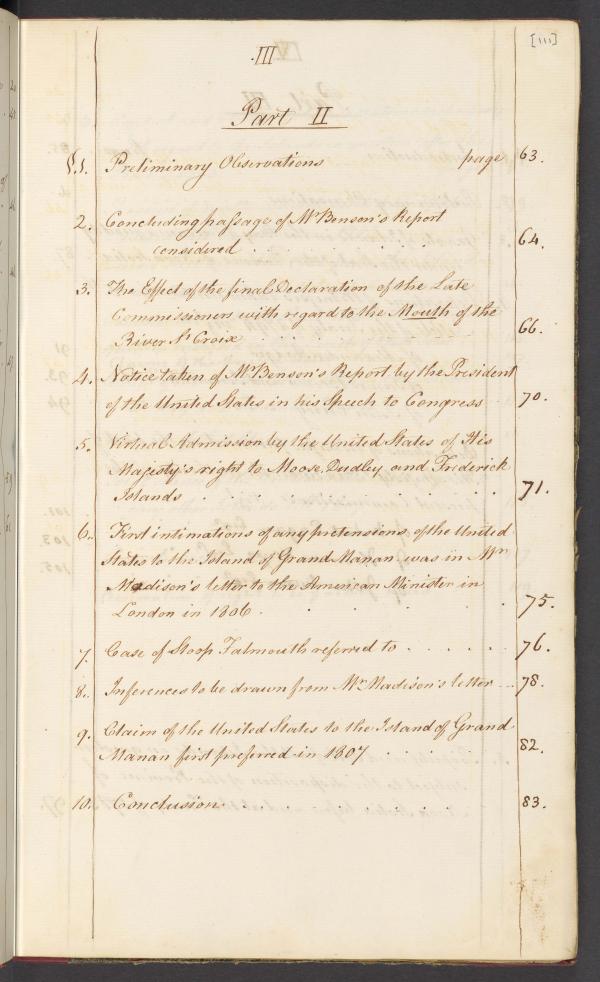 [III]
.III
Part II
§.1. Preliminary Observations page 63.
2. Concluding passage of Mr Benson's Report
considered . . . . . . 64.
3. The Effect of the final Declaration of the Late
Commissioners with regard to the Mouth of the
River St Croix . . . . . . 66.
4. Notice taken of Mr Benson's Report by the President
of the United States in his Speech to Congress 70.
5. Virtual Admission by the United States of His
Majesty's right to Moose, Dudley and Frederick
Islands . . . . . . . . 71.
6. First intimations of any pretensions of the United
States to the Island of Grand Manan was in Mr
Madison's letter to the American Minister in
London in 1806 . . . . . . 75.
7. Case of Sloop Falmouth referred to . . . . . . 76.
8. Inferences to be drawn from Mr Madison's letter ... 78.
9. Claim of the United States to the Island of Grand
Manan first preferred in 1807 . . . . . 82.
10. Conclusion . . . . . . . . 83.